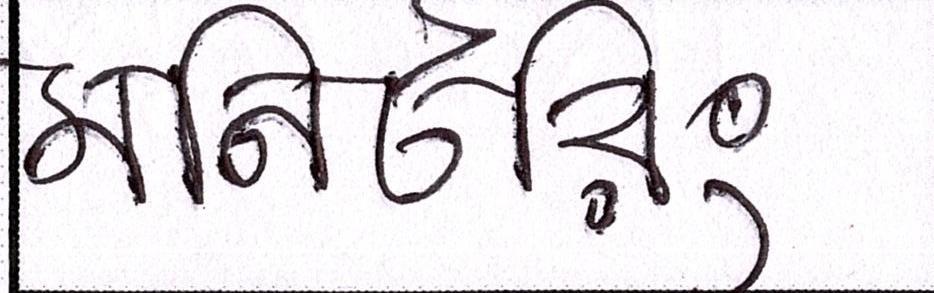 মনিটরিং